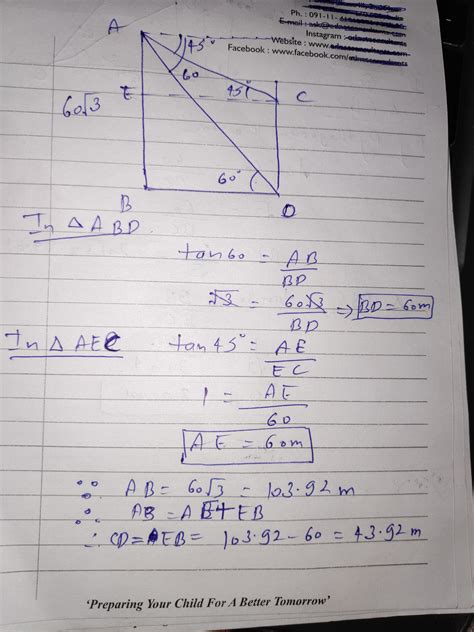 Ph. : 091-11-
Instagram :
Website : www.
Facebook : www.facebook.com/
A
45°
60
E
45°
C
60√3
60°
B
D
In △ ABD
tan60 = AB/BD
√3 = 60√3/BD ⇒ BD = 60m
In △ AEC
tan45° = AE/EC
1 = AE/60
AE = 60m
∵ AB = 60√3 = 103.92 m
∵ AB = AE+EB
∴ CD = EB = 103.92 - 60 = 43.92 m
'Preparing Your Child For A Better Tomorrow'